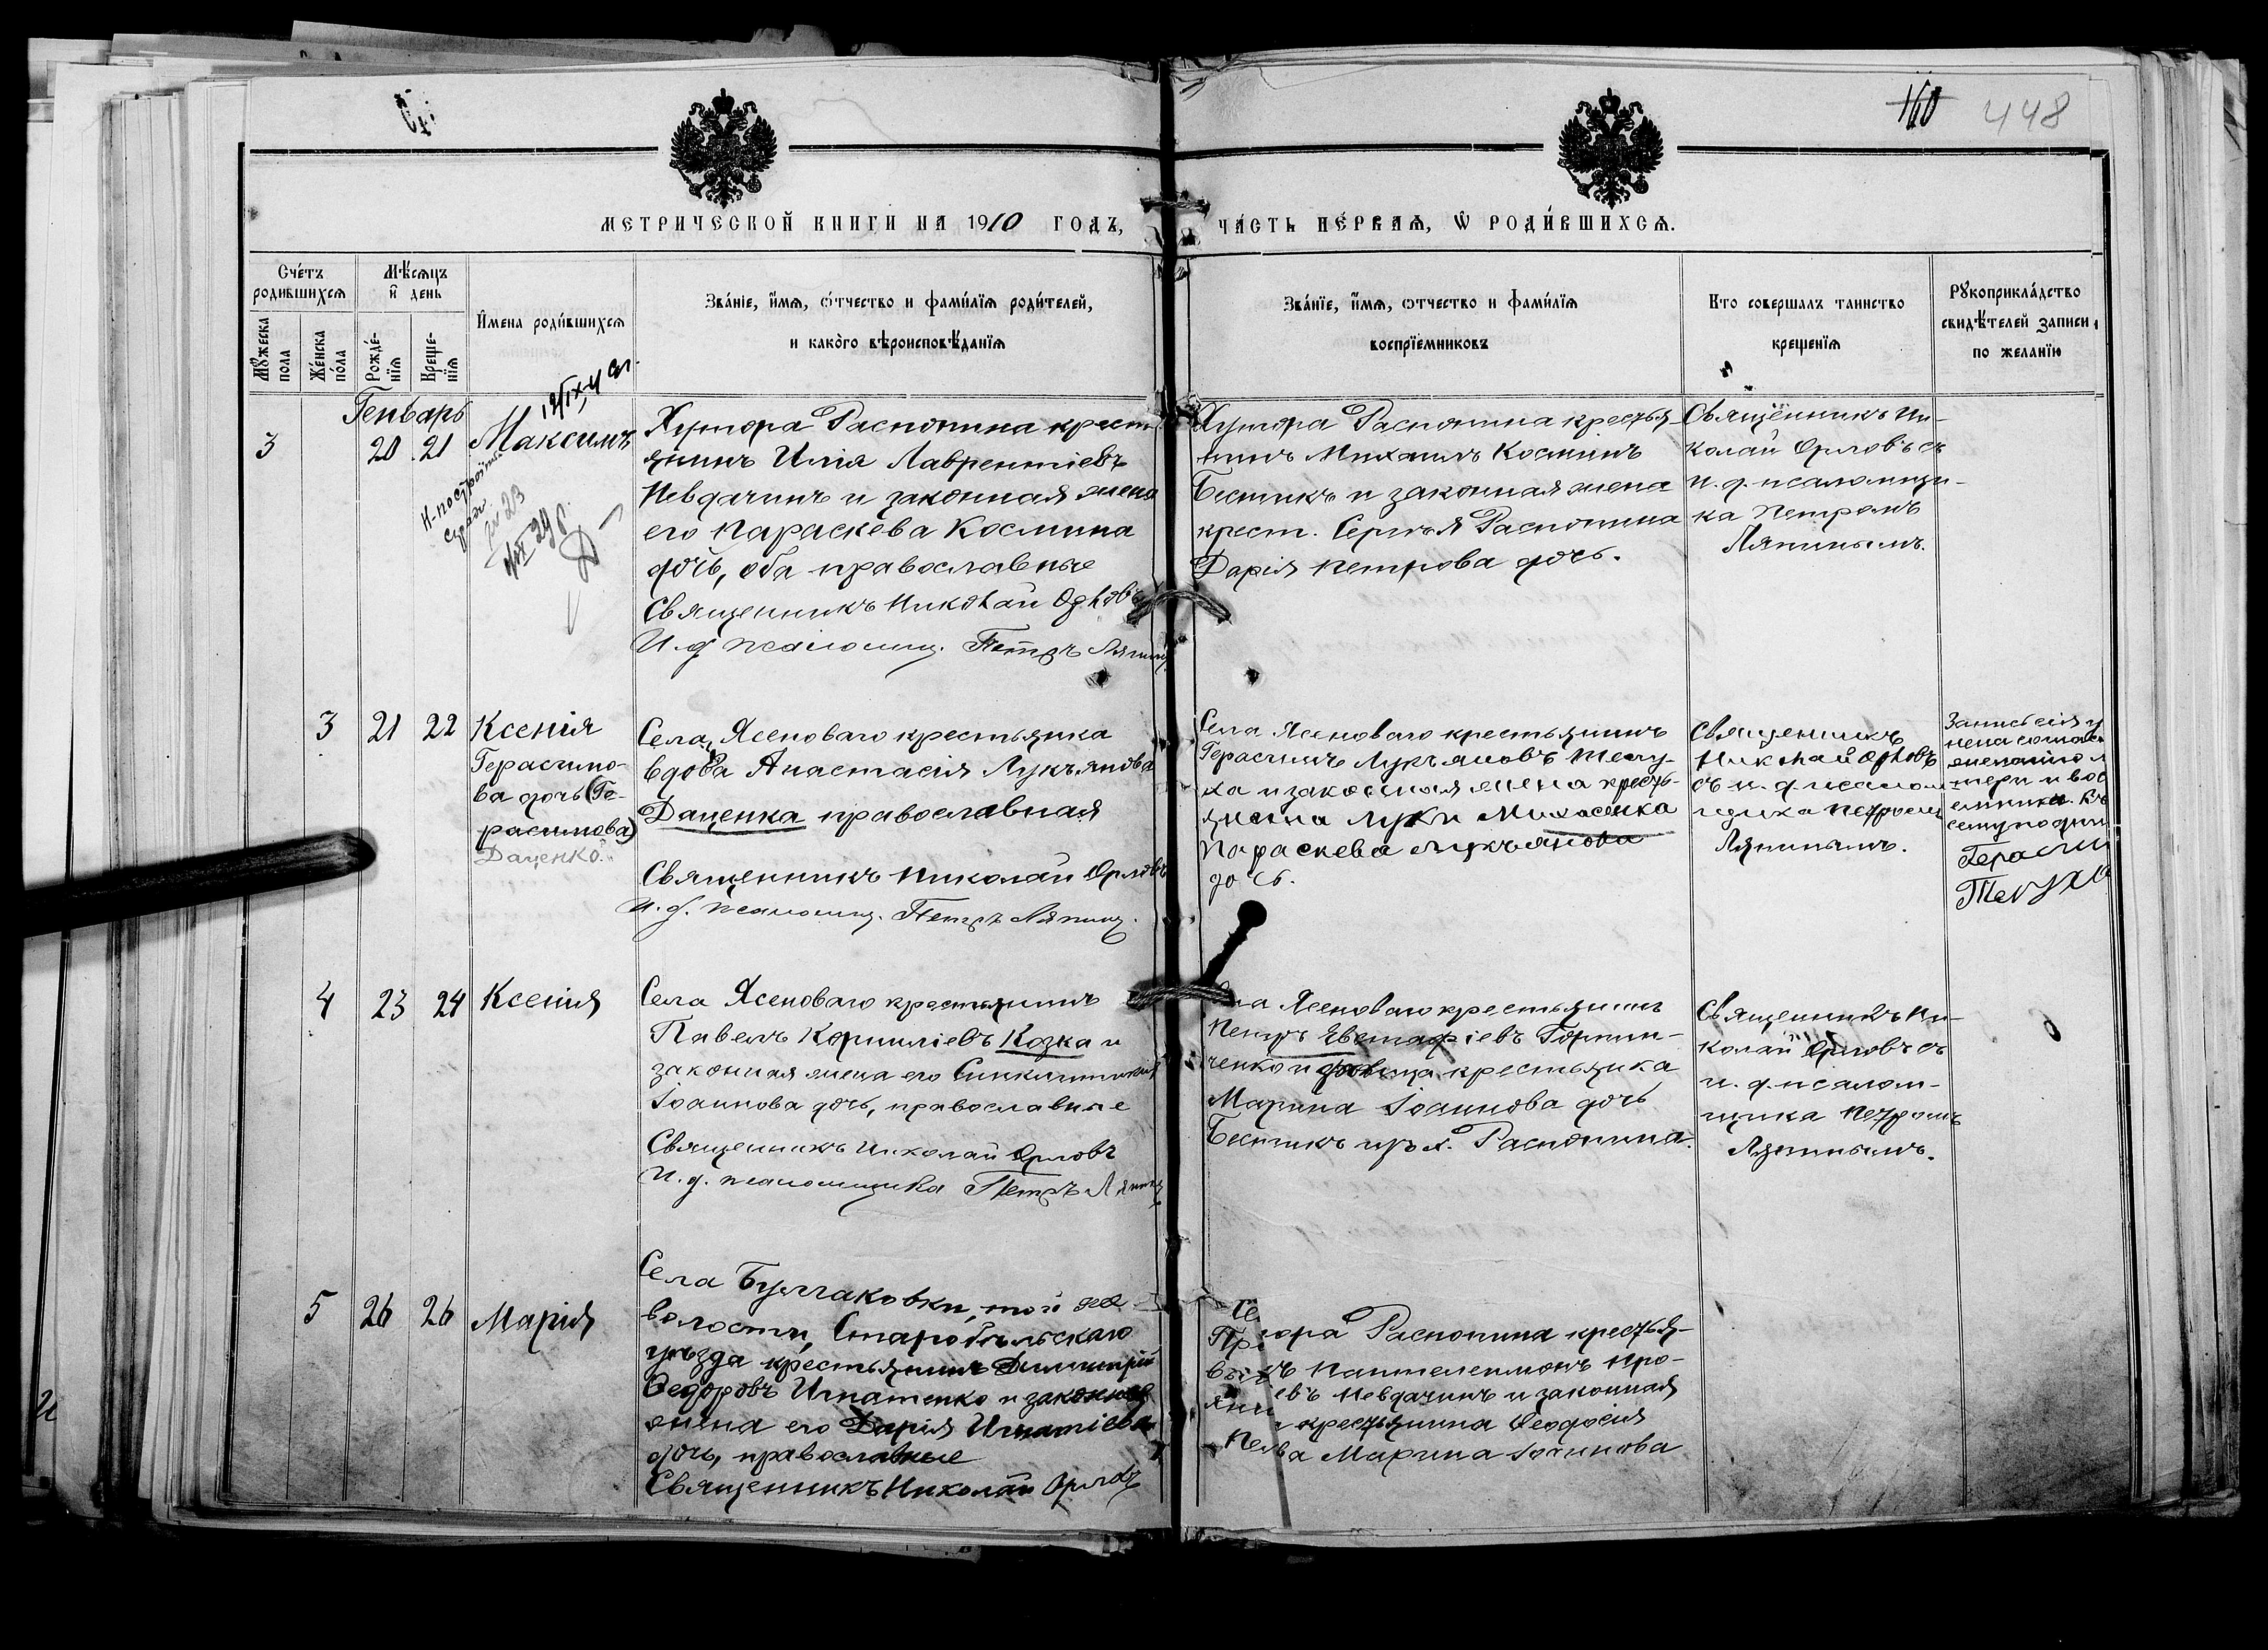 160 448
МЕТРИЧЕСКОЙ КНИГИ НА 1910 ГОДЪ,
ЧА́СТЬ ПЕ́РВАѦ, Ѡ РОДИ́ВШИХСѦ.
Сче́тъ
родившихсѧ
Мѣ́сѧцъ
и день
Мꙋ́жеска
пола
Же́нска
по́ла
Рожде́-
нїѧ
Креще-
нїѧ
И́мена роди́вшихсѧ
Зва́нїе, и́мѧ, ѻ́тчество и фами́лїѧ роди́телей,
и како́го вѣроисповѣ́данїѧ
Зва́нїе, и́мѧ, ѻтчество и фами́лїѧ
воспрїемниковъ
Кто совершалъ таинство
крещенїѧ
Рꙋкоприкла́дство
свидѣ́телей записи
по желанїю
Генварь
3 20 21 Максимъ
Хутора Распопина крест
янинъ Илія Лаврентіевъ
Невдачинъ и законная жена
его Параскева Космина
дочь, оба православные
Священникъ Николай Орловъ
И. д. псаломщ. Петръ Ляпин
Хутора Распопина крестья-
нинъ Михаилъ Косминъ
Бестикъ и законная жена
крест. Сергѣя Распопина
Дарія Петрова дочь.
Священникъ Ни-
колай Орловъ съ
и. д. псаломщи-
ка Петромъ
Ляпинымъ.
3 21 22 Ксенія
Герасимо-
ва дочь (Ге-
расимова)
Даценко
Села Ясеноваго крестьянка
вдова Анастасія Лукьянова
Даценка православная
Священникъ Николай Орловъ
И. д. псаломщ. Петръ Ляпин.
Села Ясеноваго крестьянинъ
Герасимъ Лукьяновъ
ка и законная жена кресть-
янина Луки
Параскева Лукьянова
дочь.
Священникъ
Николай Орловъ
съ и. д. псалом
щика Петромъ
Ляпинымъ.
Запись сія
Герасим
4 23 24 Ксенія
Села Ясеноваго крестьянинъ
Павелъ Корниліевъ Козка и
законная жена его Синклитикія
Іоаннова дочь, православные
Священникъ Николай Орловъ
И. д. псаломщика Петръ Ляпин
Ясеноваго крестьянинъ
Петръ Евстафіевъ Горпин-
ченко и крестьянка
Марина Іоаннова дочь
Бестикъ изъ х. Распопина.
Священникъ Ни-
колай Орловъ съ
и. д. псалом-
щика Петромъ
Ляпинымъ.
5 26 26 Марія
Села Булгаковки, той же
волости, Старобѣльскаго
уѣзда крестьянинъ Димитрій
Ѳедоровъ Игнатенко и законная
жена его Дарія Игнатіева
дочь, православные
Священникъ Николай Орловъ
тора Распопина крестья-
Пантелеимонъ Про-
евъ Невдачинъ и законная
крестьянина Ѳеодосія
ва Марина Іоаннова